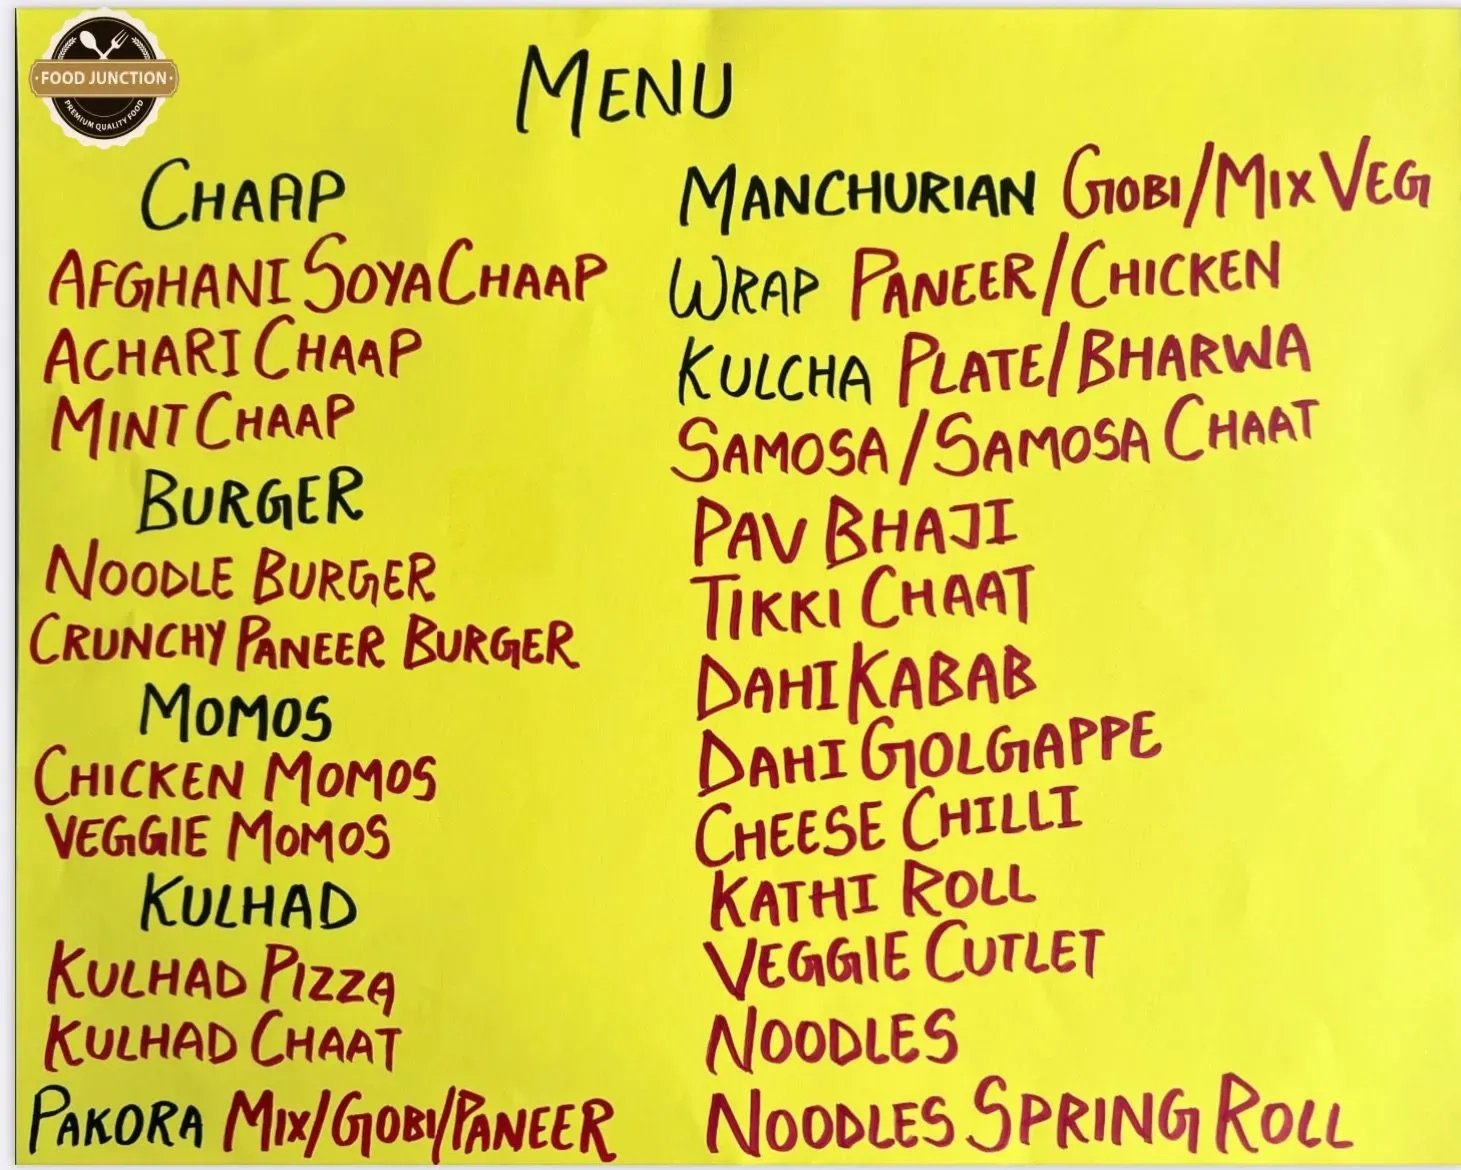 FOOD JUNCTION
PREMIUM QUALITY FOOD
MENU
CHAAP
AFGHANI SOYA CHAAP
ACHARI CHAAP
MINT CHAAP
BURGER
NOODLE BURGER
CRUNCHY PANEER BURGER
MOMOS
CHICKEN MOMOS
VEGGIE MOMOS
KULHAD
KULHAD PIZZA
KULHAD CHAAT
PAKORA MIX/GOBI/PANEER
MANCHURIAN GOBI/MIX VEG
WRAP PANEER/CHICKEN
KULCHA PLATE/BHARWA
SAMOSA/SAMOSA CHAAT
PAV BHAJI
TIKKI CHAAT
DAHI KABAB
DAHI GOLGAPPE
CHEESE CHILLI
KATHI ROLL
VEGGIE CUTLET
NOODLES
NOODLES SPRING ROLL